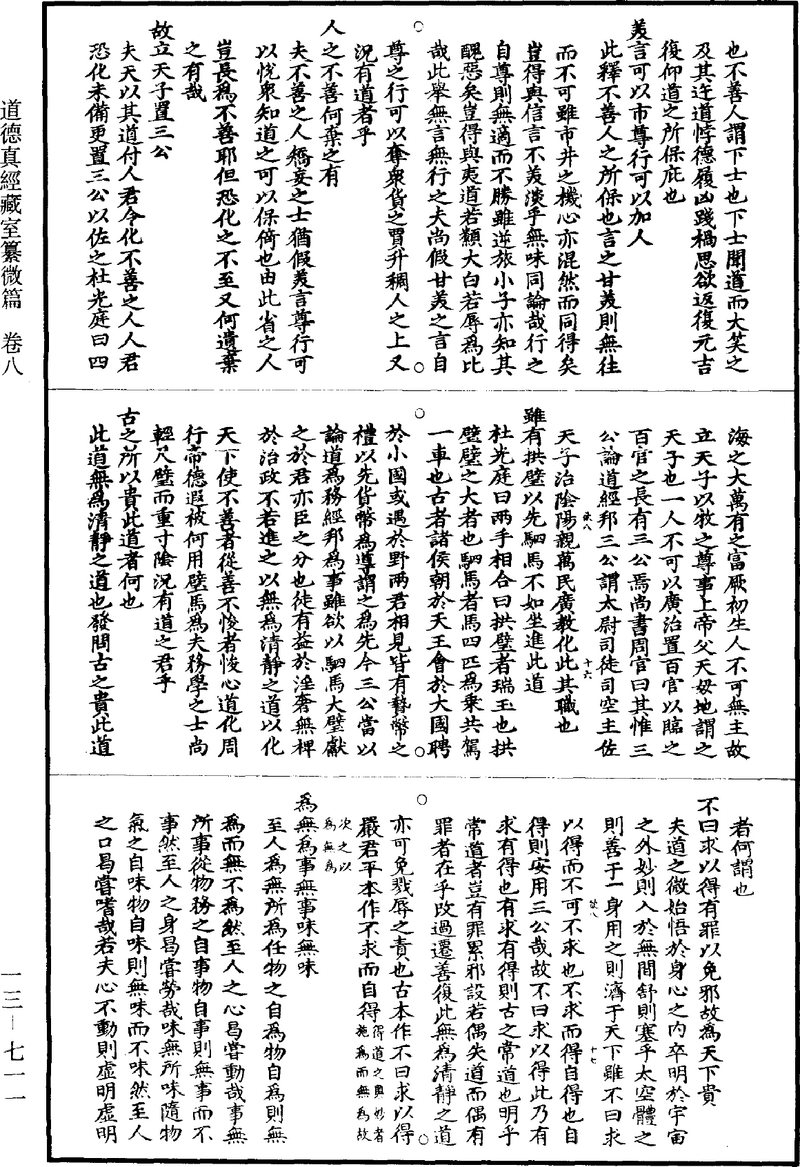 道德真經藏室纂微篇　卷八
一三—七一一
也不善人謂下士也下士聞道而大笑之
及其迕道悖德履凶踐禍思欲返復元吉
復仰道之所保庇也
美言可以市尊行可以加人
此釋不善人之所保也言之甘美則無往
而不可雖市井之機心亦混然而同得矣
豈得與信言不美淡乎無味同論哉行之
自尊則無適而不勝雖逆旅小子亦知其
醜惡矣豈得與夷道若纇大白若辱爲比
哉此舉無言無行之夫尚假甘美之言自
尊之行可以奪衆貨之賈升稠人之上又
況有道者乎
人之不善何棄之有
夫不善之人矯妄之士猶假美言尊行可
以悅衆知道之可以保倚也由此省之人
豈長爲不善耶但恐化之不至又何遺棄
之有哉
故立天子置三公
夫天以其道付人君令化不善之人人君
恐化未備更置三公以佐之杜光庭曰四
海之大萬有之富厥初生人不可無主故
立天子以牧之尊事上帝父天母地謂之
天子也一人不可以廣治置百官以臨之
百官之長有三公焉尚書周官曰其惟三
公論道經邦三公謂太尉司徒司空主佐
天子治陰陽親萬民廣教化此其職也
雖有拱璧以先駟馬不如坐進此道
杜光庭曰兩手相合曰拱璧者瑞玉也拱
璧璧之大者也駟馬者馬四匹爲乘共駕
一車也古者諸侯朝於天王會於大國聘
於小國或遇於野兩君相見皆有贄幣之
禮以先貨幣爲導謂之爲先今三公當以
論道爲務經邦爲事雖欲以駟馬大璧獻
之於君亦臣之分也徒有益於淫奢無裨
於治政不若進之以無爲清靜之道以化
天下使不善者從善不悛者悛心道化周
行帝德遐被何用璧馬爲夫務學之士尚
輕尺璧而重寸陰況有道之君乎
古之所以貴此道者何也
此道無爲清靜之道也發問古之貴此道
者何謂也
不曰求以得有罪以免邪故爲天下貴
夫道之微始悟於身心之內卒明於宇宙
之外妙則入於無間舒則塞乎太空體之
則善于一身用之則濟于天下雖不曰求
以得而不可不求也不求而得自得也自
得則安用三公哉故不曰求以得此乃有
求有得也有求有得則古之常道也明乎
常道者豈有罪累邪設若偶失道而偶有
罪者在乎改過遷善復此無爲清靜之道
亦可免戮辱之責也古本作不曰求以得
嚴君平本作不求而自得得道之奧妙者施爲而無爲故
次之以爲無爲
爲無爲事無事味無味
至人爲無所爲任物之自爲物自爲則無
爲而無不爲然至人之心曷嘗動哉事無
所事從物務之自事物自事則無事而不
事然至人之身曷嘗勞哉味無所味隨物
氣之自味物自味則無味而不味然至人
之口曷嘗嗜哉若夫心不動則虛明虛明